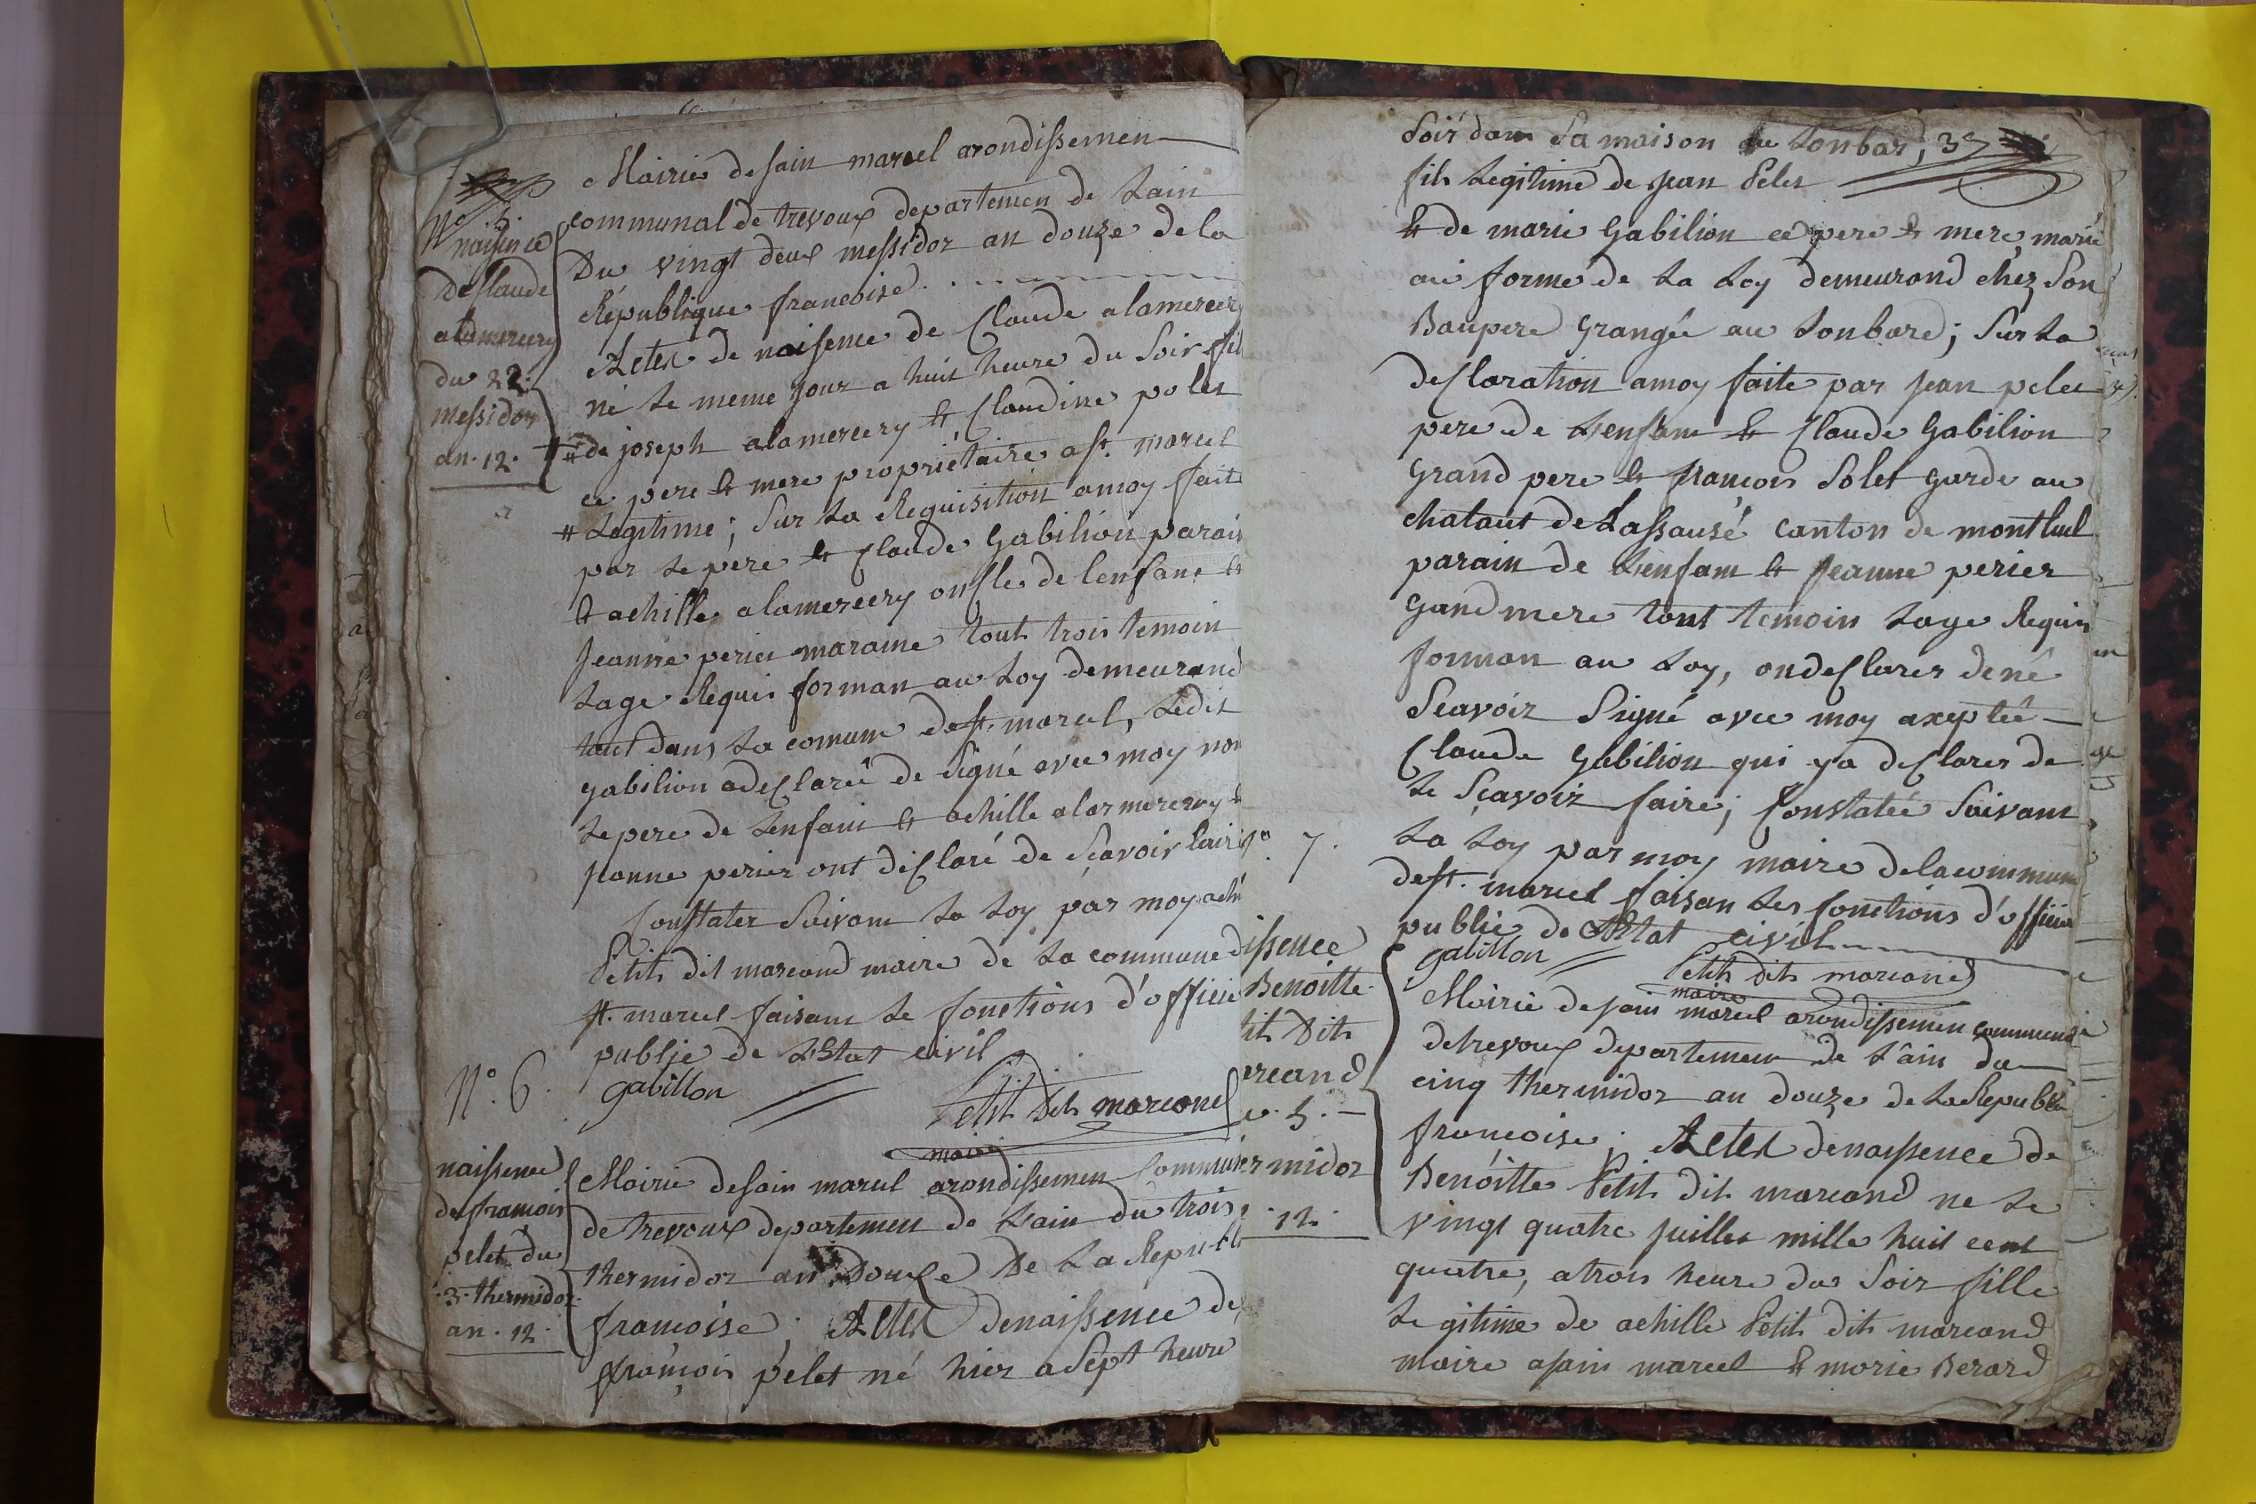 N° 5.
naisence
de Claude
alamercery
du 22.
messidor
an. 12.
Mairie de sain marcel arondissemen
communal de trevoux departemen de Lain
Du vingt deux messidor an douze de la
République francoise
Actes de naisence de Claude alamercery
né le meme jour a huit heure du Soir fils
# de joseph alamercery et Claudine polet
ce pere et mere propriétaire a st. marcel
# Legitime; Sur la Requisition amoy fait
par le père et Claude Gabilion parain
et achille alamercery oncle de lenfant et
Jeanne perier maraine tout trois temoin
Lage Requis forman au Loy demeurand
tout dans la comune de st. marcel, Ledit
gabilion adesclaré de Signé avec moy non
Le pere de Lenfant et achille alarmercery et
jeanne perier ont desclaré de Scavoir faire
Constater Suivant la Loy par moy achi
Petit dit marcand maire de la commune d
st. marcel faisant le fonctions d'officie
public de LEtat civil
gabillon
Petit dit marcand
maire
N° 6.
naissence
de francois
pelet du
3. thermidor
an. 12.
Mairie de sain marcel arondissemen Commun
de trevoux departemen de Lain du trois
thermidor an Douze de La Republi
francoise; Actes denaissence de
françois pelet né hier a Sept heure
Soir dans Sa maison au Lonbar, 37
fils Legitime de jean Pelet
et de marie Gabilion ce pere et mere marié
au forme de la Loy demeurand chez Son
Baupere Grangé au Lonbard; Sur La
desclaration amoy faite par jean pelet
pere de Lenfant et Claude Gabilion
Grand pere et francois Polet garde au
chataut de Lassausé canton de montluel
parain de Lenfant et Jeanne perier
Gand mere tout temoin Lage Requis
forman au Loy, ondesclarer de né
Scavoir Signé avec moy axeptée
Claude Gabilion qui ya desclarer de
le Scavoir faire; Constatée Suivant
La Loy par moy maire de la commune
de st. marcel faisan les fonctions d'officie
public de LEtat civil
gabillon
Petit dit marcand
maire
° 7.
issence
Benoitte
tit Dit
rcand
u. 5.
ermidor
12.
Mairie de sain marcel arondissemen communal
detrevoux departemen de L'ain du
cinq thermidor an douze de La Republi
francoise; Actes denaissence de
Benoitte Petit dit marcand ne le
vingt quatre juillet mille huit cent
quatre, atrois heure du Soir fille
Legitime de achille Petit dit marcand
maire asain marcel et marie Berard